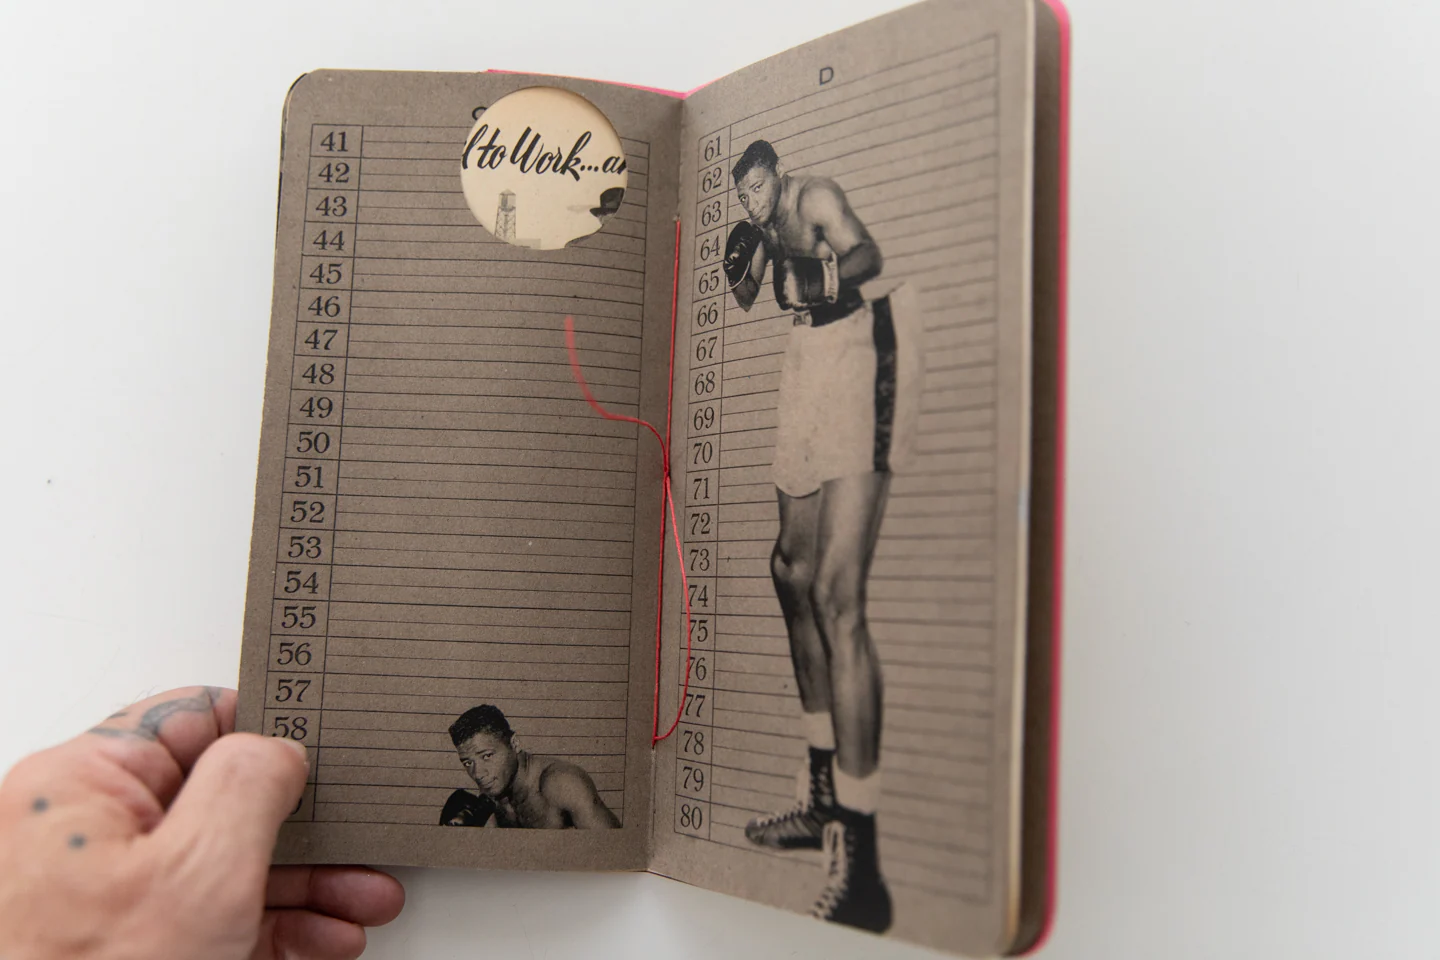 to Work...a
41
42
43
44
45
46
47
48
49
50
51
52
53
54
55
56
57
58
D
61
62
63
64
65
66
67
68
69
70
71
72
73
74
75
76
77
78
79
80